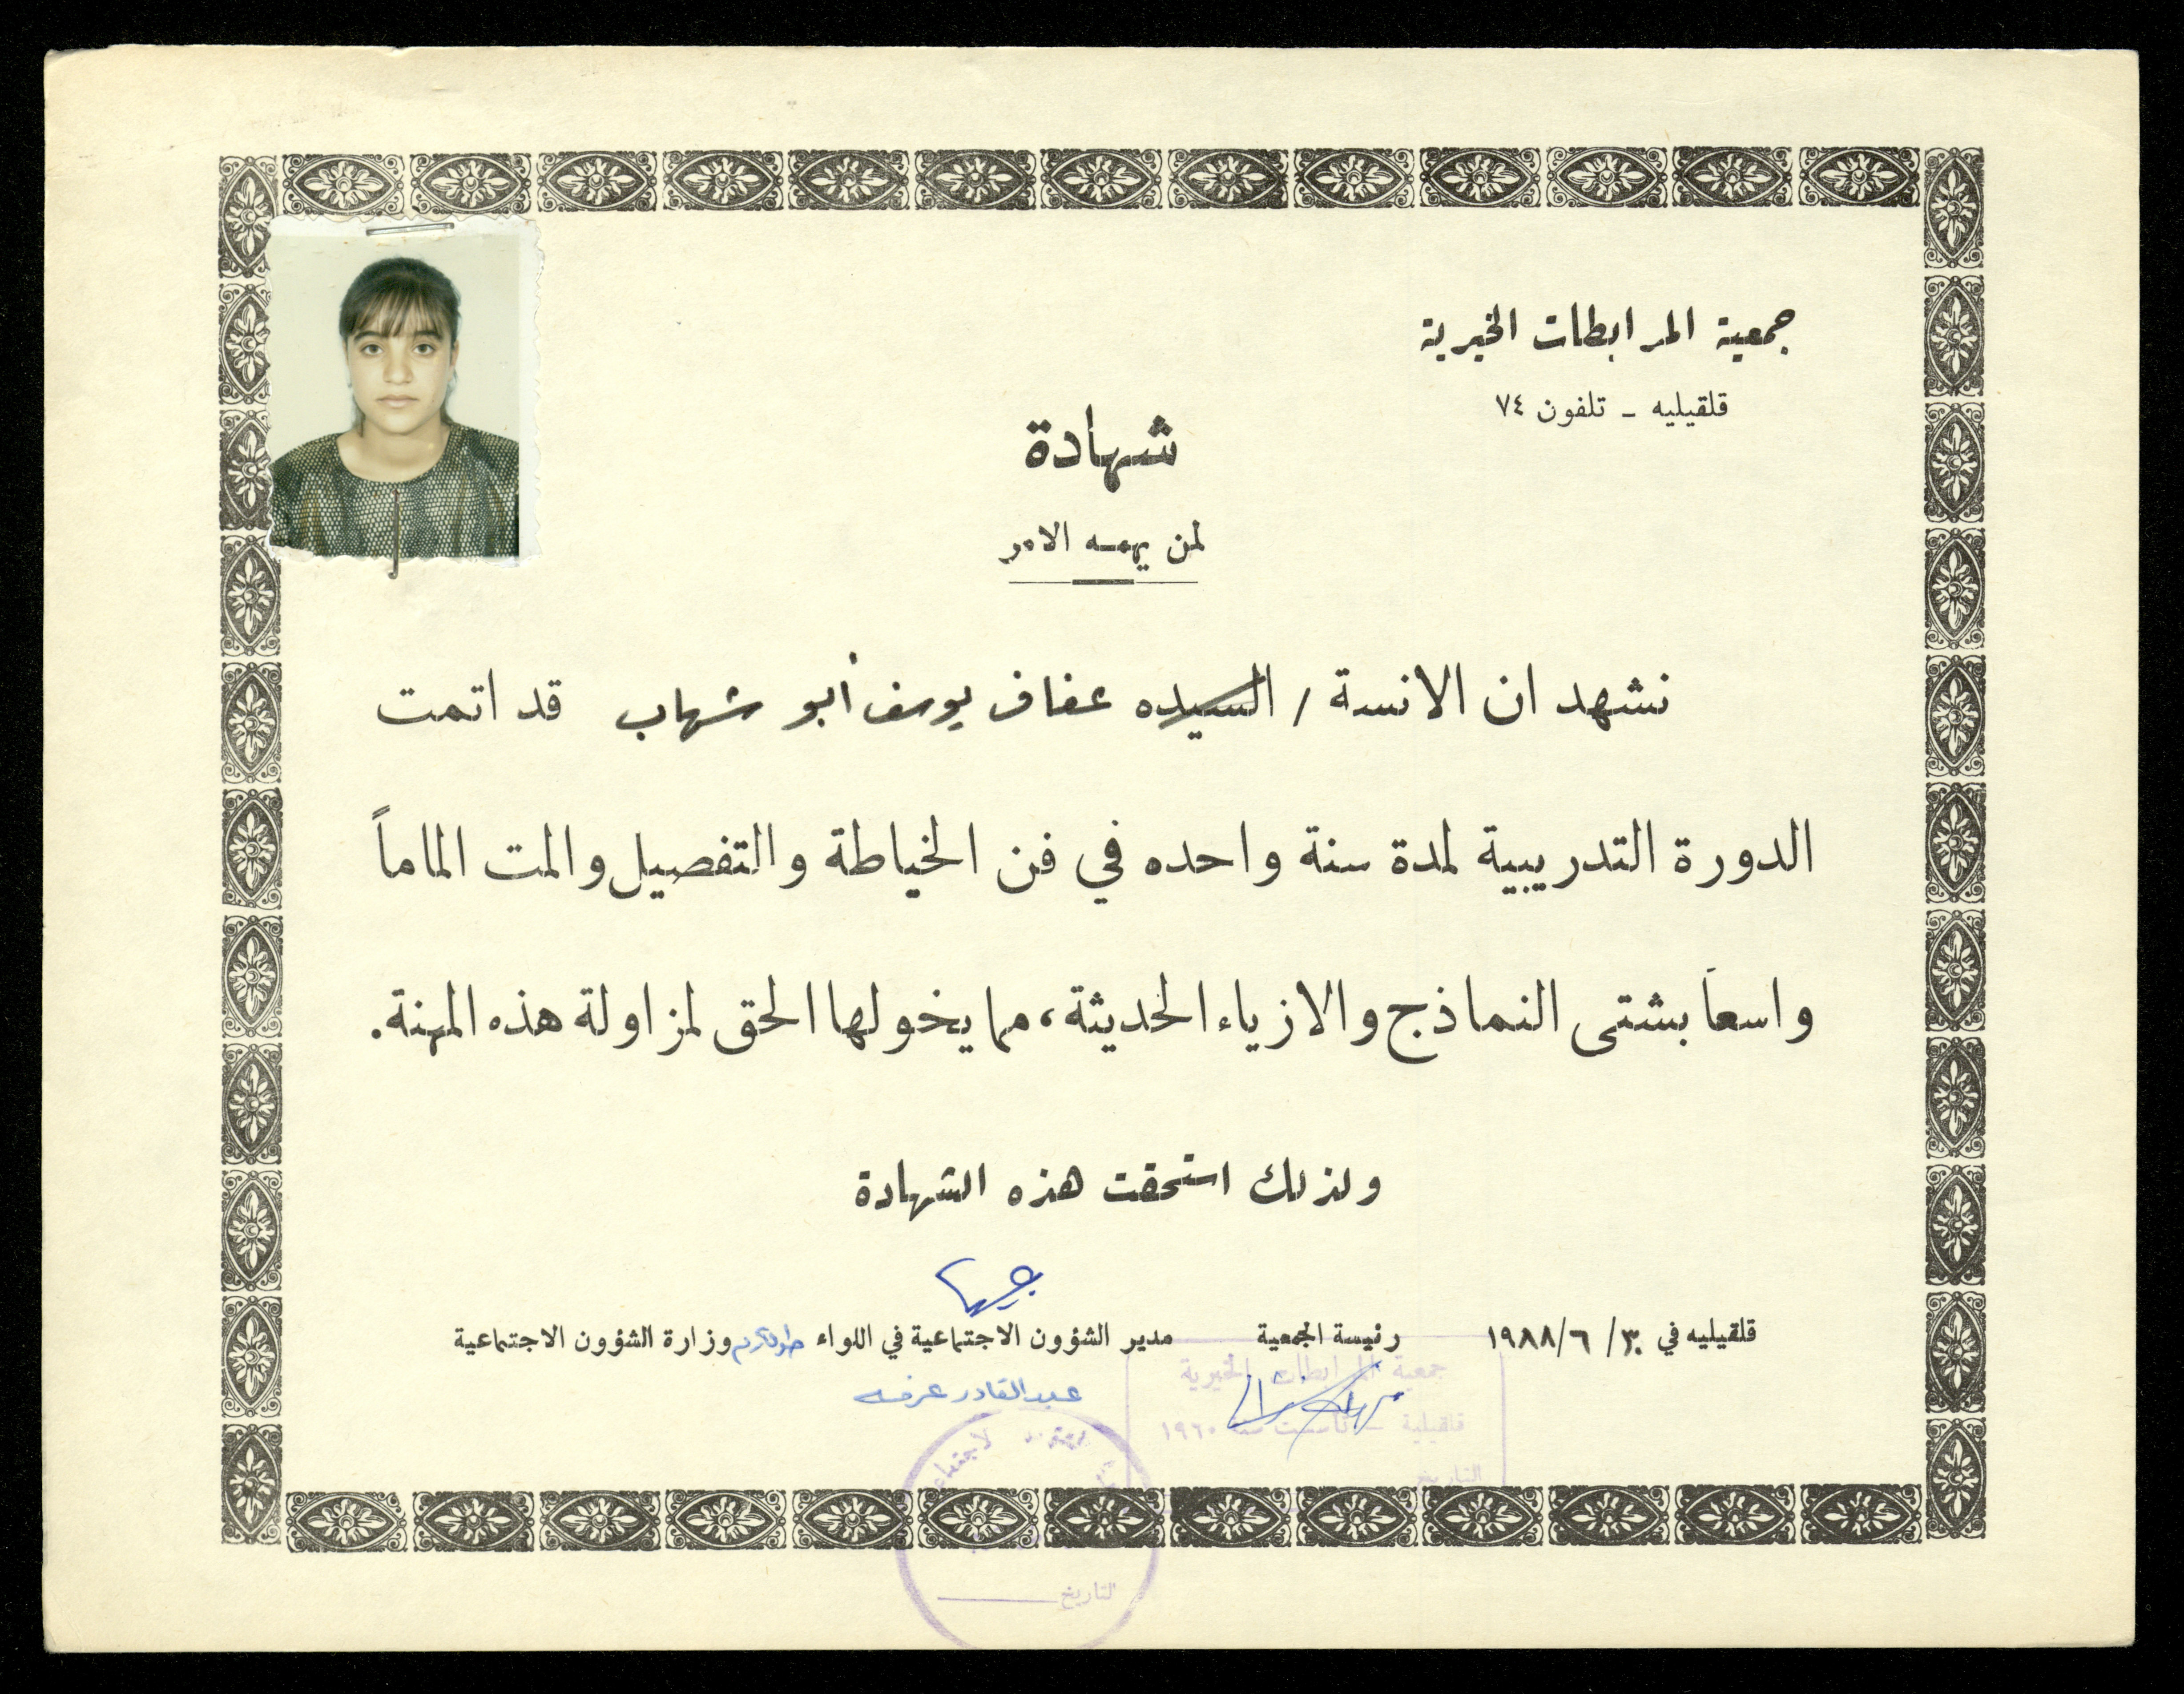 جمعية المرابطات الخيرية
قلقيليه - تلفون ٧٤
شهادة
لمن يهمه الامر
نشهد ان الانسة / السيده عفاف يوسف أبو شهاب قد اتمت
الدورة التدريبية لمدة سنة واحده في فن الخياطة والتفصيل والمت الماماً
واسعاً بشتى النماذج والازياء الحديثة، مما يخولها الحق لمزاولة هذه المهنة.
ولذلك استحقت هذه الشهادة
قلقيليه في ٣٠/ ٦ /١٩٨٨ رئيسة الجمعية مدير الشؤون الاجتماعية في اللواء طولكرم وزارة الشؤون الاجتماعية
عبد القادر عرفه
جمعية المرابطات الخيرية
قلقيلية - تأسست سنة ١٩٦٠
التاريخ
التاريخ